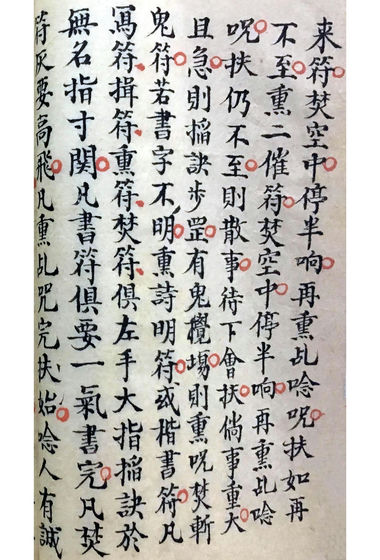 来符焚空中停半晌再熏乩唸咒扶如再
不至熏二催符焚空中停半晌再熏乩唸
咒扶仍不至則散事待下會扶倘事重大
且急則搯訣步罡有鬼攪場則熏咒焚斬
鬼符若書字不明熏詩明符或楷書符凡
寫符揖符熏符焚符俱左手大指搯訣於
無名指寸関凡書符俱要一氣書完凡焚
符灰要高飛凡熏乩咒完扶始唸人有誠